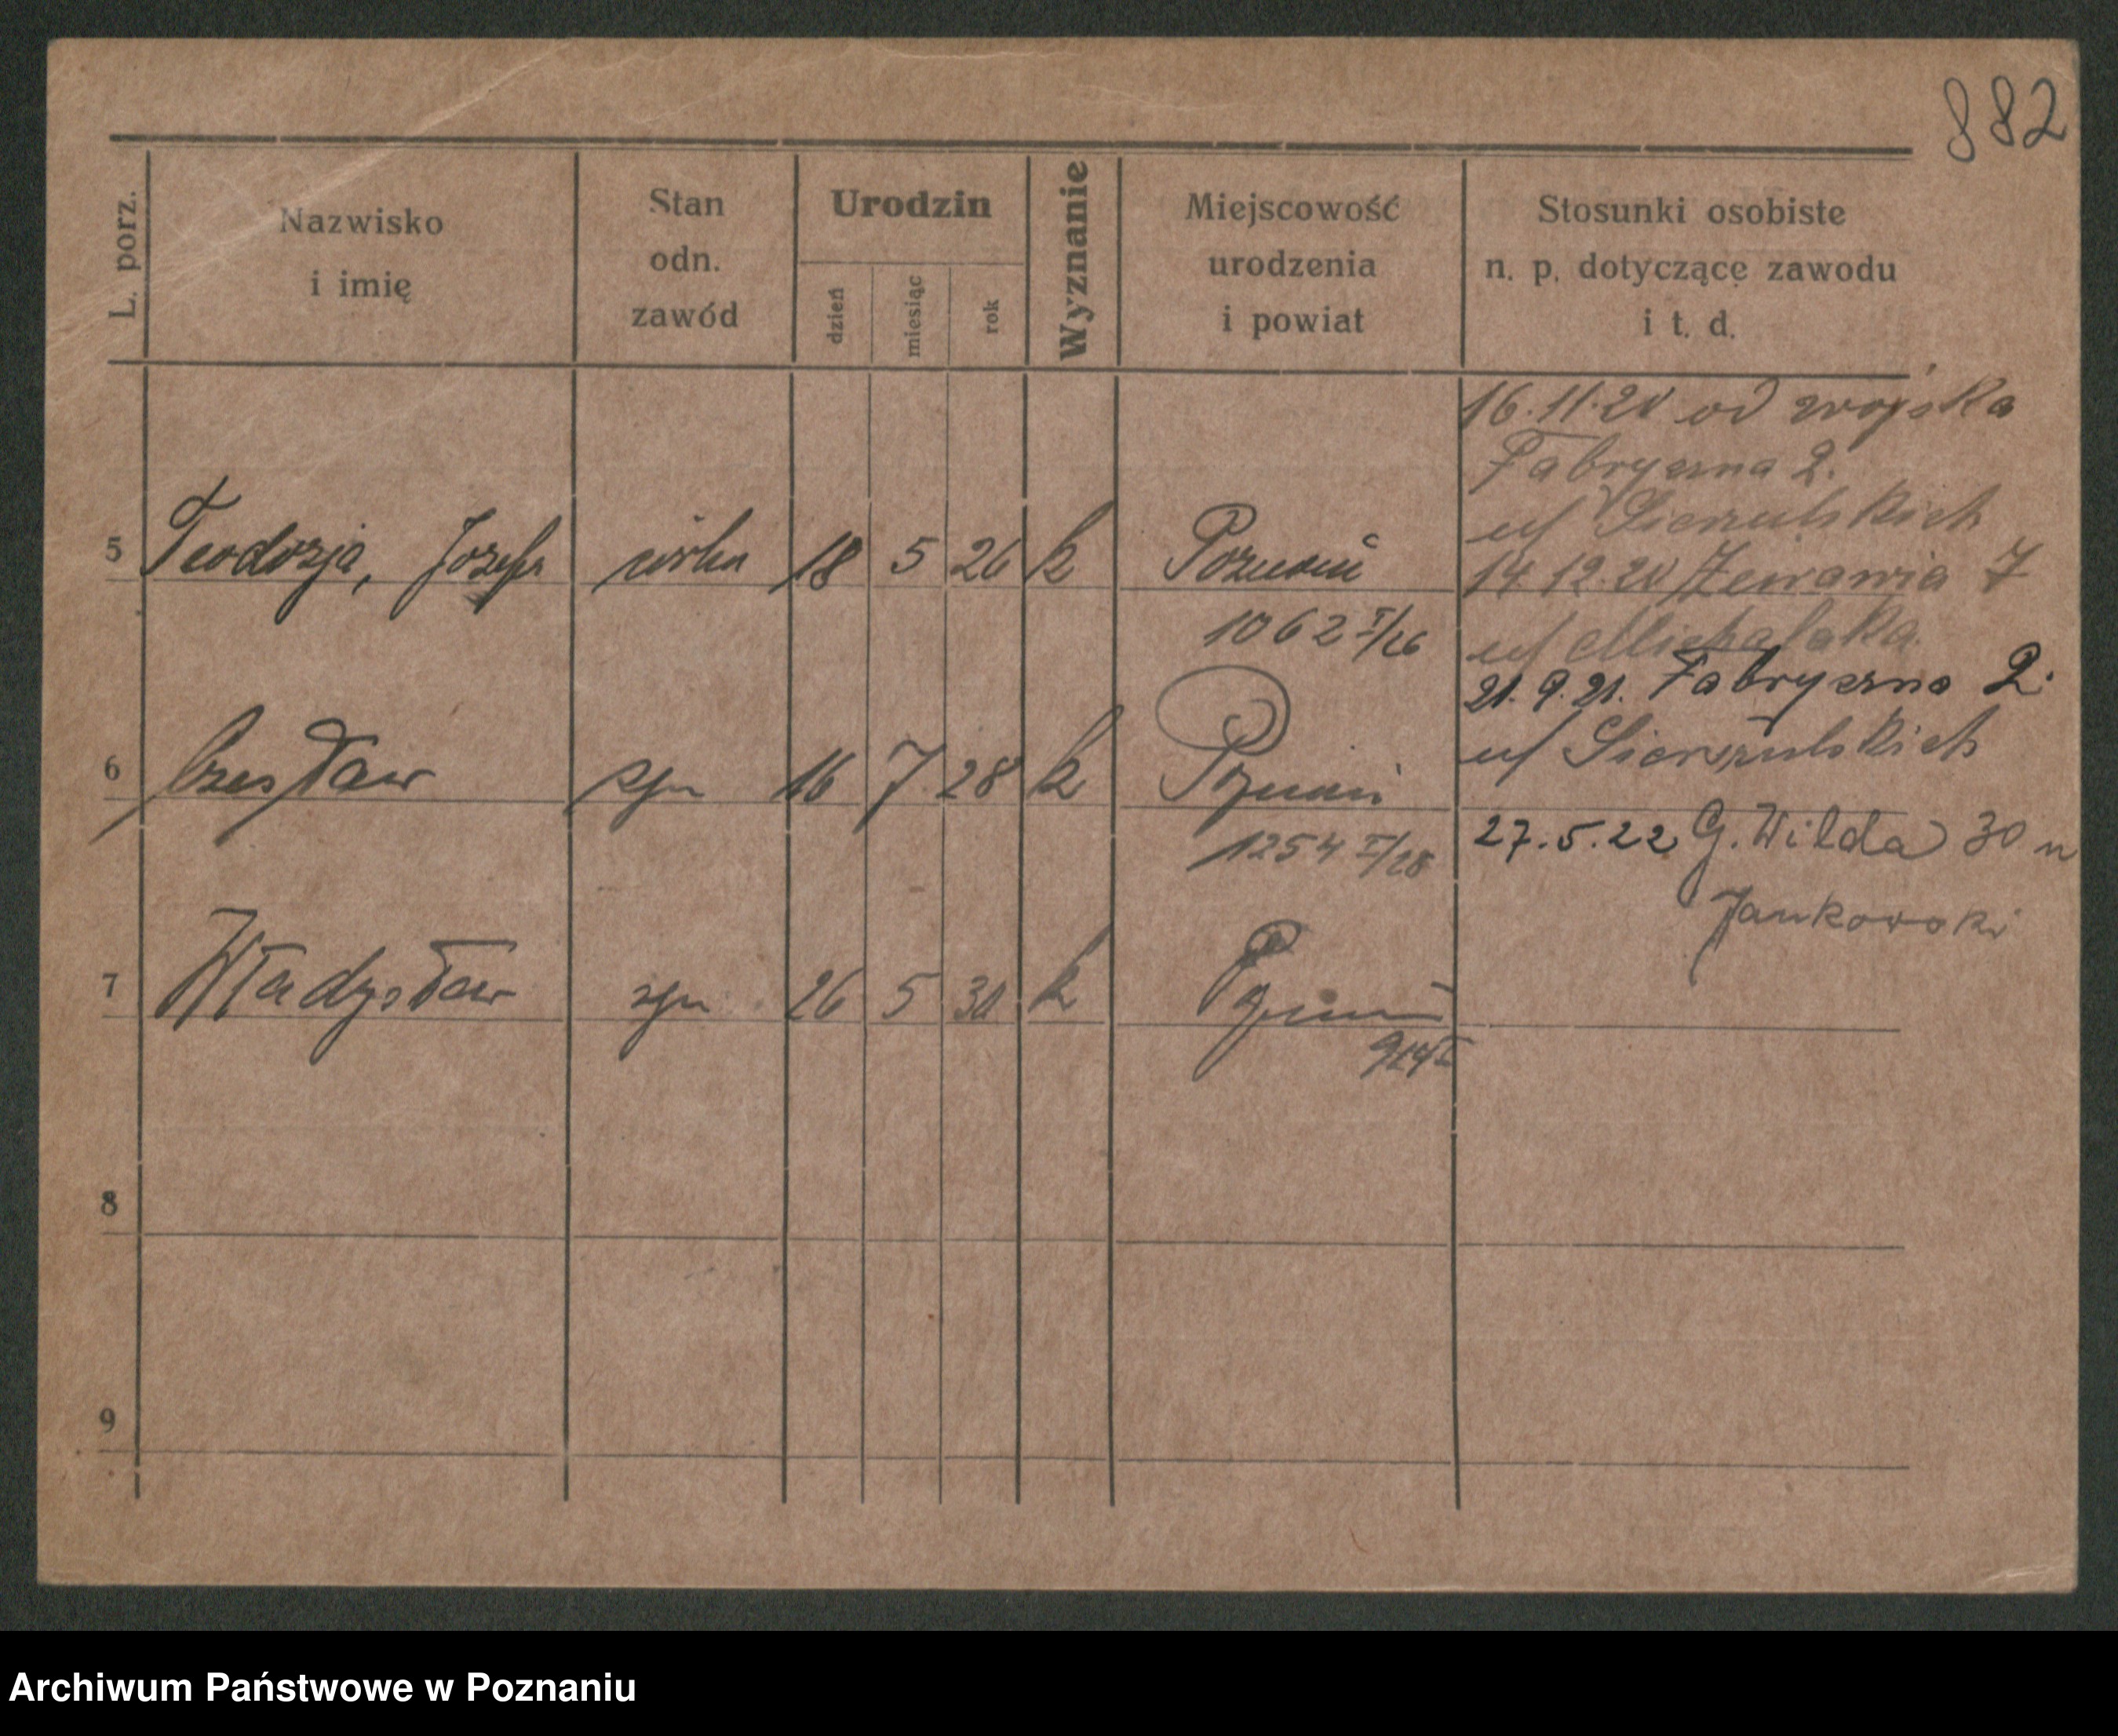 882
L. porz.
Nazwisko
i imię
Stan
odn.
zawód
Urodzin
dzień
miesiąc
rok
Wyznanie
Miejscowość
urodzenia
i powiat
Stosunki osobiste
n. p. dotyczące zawodu
i t. d.
16.11.20 od wojska
Fabryczna 2.
5 Teodozja, Józefa córka 18 5 26 k Poznań
14.12.20 7
1062 I/26
u/ Michalaka
21.9.21. Fabryczna 2.
u/ Sierszulskich
6 Czesław syn 16 7 28 k Poznań
1254 I/28
27.5.22 G. Wilda 30 u
Jankowski
7 Władysław syn 26 5 30 k Poznań
8
9
Archiwum Państwowe w Poznaniu